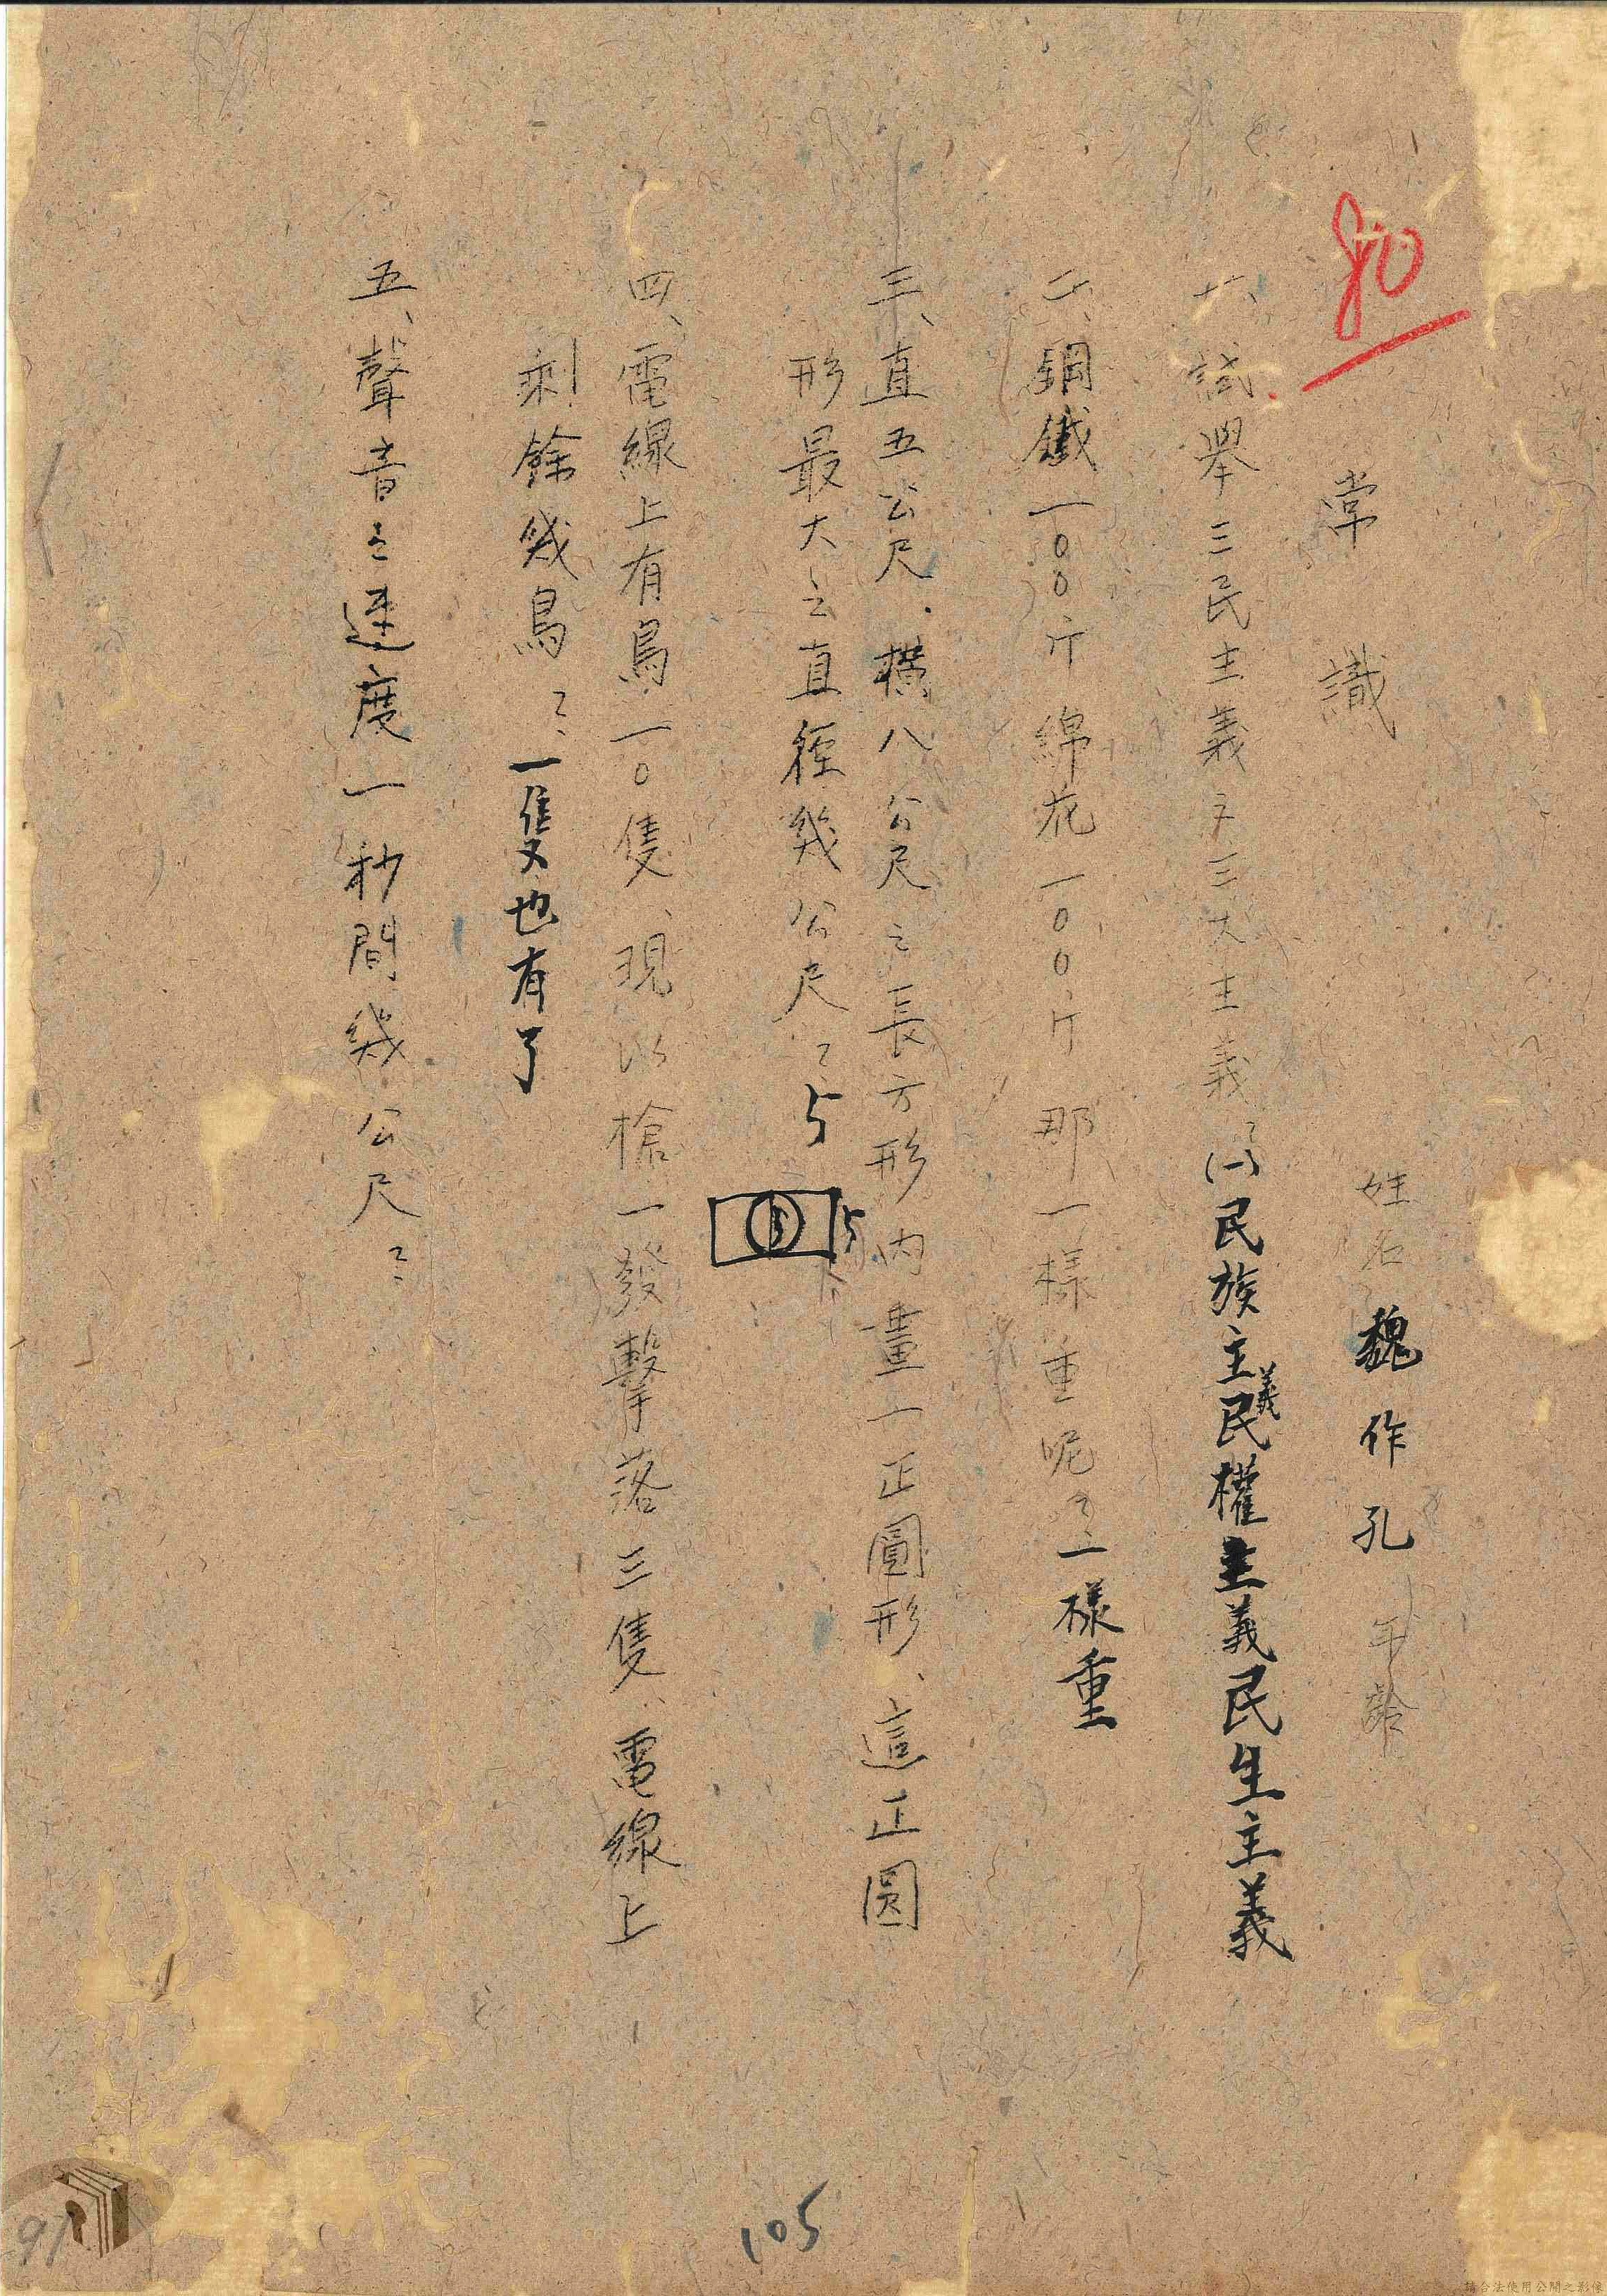 80
常識 姓名 魏作孔 年齡
一、試舉三民主義之三大主義？(一)民族主義民權主義民生主義
二、鋼鐵一00斤綿花一00斤那一樣重呢？一樣重
三、直五公尺．橫八公尺之長方形內畫一正圓形、這正圓
形最大之直徑幾公尺？5
5
四、電線上有鳥一0隻、現以槍一發擊落三隻、電線上
剩餘幾鳥？一隻也有了
五、聲音之速度一秒間幾公尺？
105
91
請合法使用公開之影像